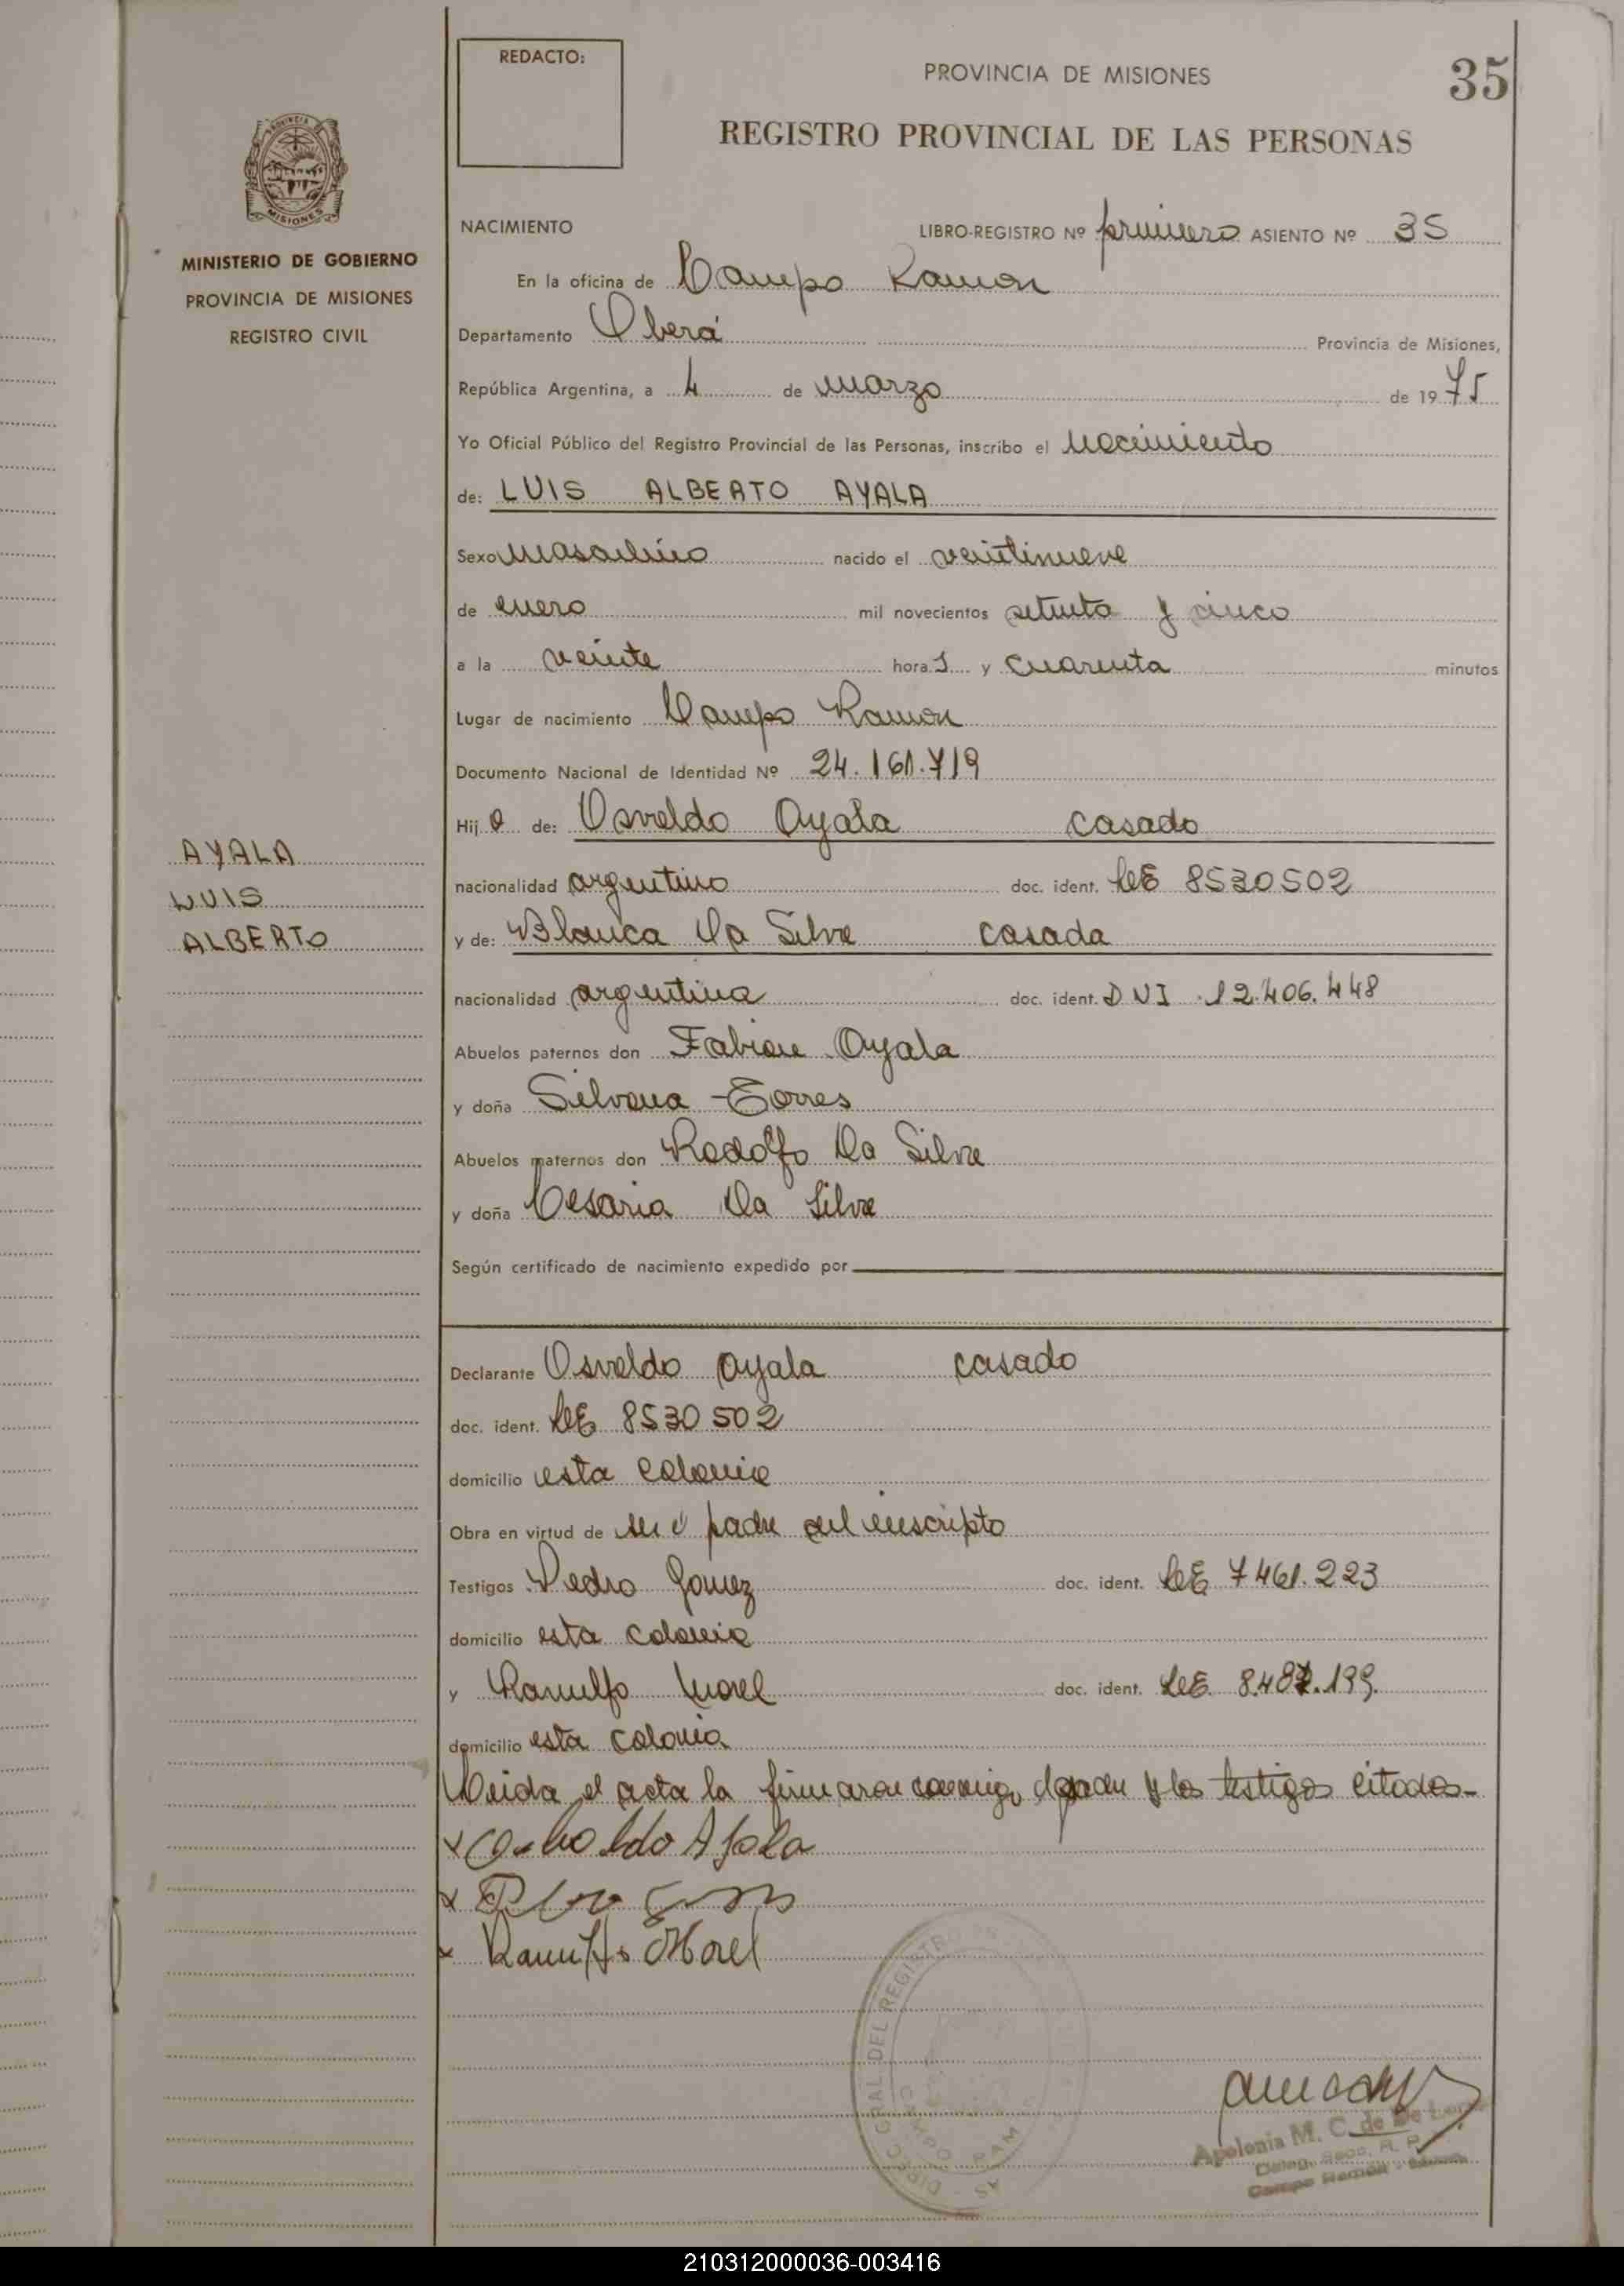 REDACTO:
PROVINCIA DE MISIONES
35
REGISTRO PROVINCIAL DE LAS PERSONAS
PROVINCIA DE
MISIONES
MINISTERIO DE GOBIERNO
PROVINCIA DE MISIONES
REGISTRO CIVIL
NACIMIENTO LIBRO-REGISTRO Nº primero ASIENTO Nº 35
En la oficina de Campo Ramon
Departamento Oberá Provincia de Misiones,
República Argentina, a 4 de marzo de 1975
Yo Oficial Público del Registro Provincial de las Personas, inscribo el nacimiento
de: LUIS ALBERTO AYALA
Sexo masculino nacido el veintinueve
de enero mil novecientos setenta y cinco
a la veinte hora s y cuarenta minutos
Lugar de nacimiento Campo Ramon
Documento Nacional de Identidad Nº 24.161.719
Hij o de: Osvaldo Ayala casado
AYALA
LUIS
ALBERTO
nacionalidad argentino doc. ident. LE 8530502
y de: Blanca Da Silva casada
nacionalidad argentina doc. ident. DNI 12.406.448
Abuelos paternos don Fabian Ayala
y doña Silvana Torres
Abuelos maternos don Rodolfo Da Silva
y doña Cesaria Da Silva
Según certificado de nacimiento expedido por
Declarante Osvaldo Ayala casado
doc. ident. LE 8530502
domicilio esta colonia
Obra en virtud de ser el padre del inscripto
Testigos Pedro Gomez doc. ident. LE 7461.223
domicilio esta colonia
y Ramulfo Morel doc. ident. LE 8.487.199.
domicilio esta colonia
Leida el acta la firmaron conmigo, el padre y los testigos citados-
x Osbaldo Ajala
x
x Ramulfo Morel
DIREC. GRAL. DEL REGISTRO
CAMPO RAM
Apolonia M. C. de De
Deleg. R. P.
Campo Ramón -
210312000036-003416